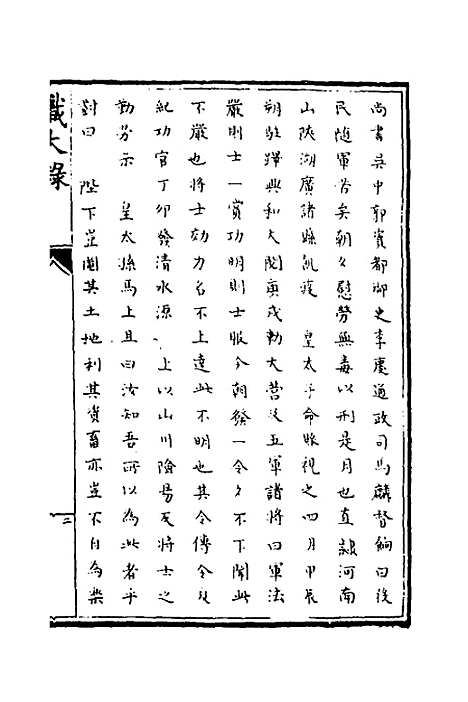 尚書吳中郭資都御史李慶通政司馬麟督餉曰役
民隨軍苦矣朝夕慰勞無毒以刑是月也直隸河南
山陝湖廣諸縣飢疫 皇太子命賑視之四月甲辰
朔駐蹕興和大閱庚戌勅大營及五軍諸將曰軍法
嚴則士一賞功明則士服今朝發一令夕不下聞此
不嚴也將士効力名不上達此不明也其令傳令及
紀功官丁卯發清水源 上以山川險易及將士之
勤勞示 皇太孫馬上且曰汝知吾所以為此者乎
對曰 陛下豈圖其土地利其貨畜亦豈不自為樂
識大錄
二